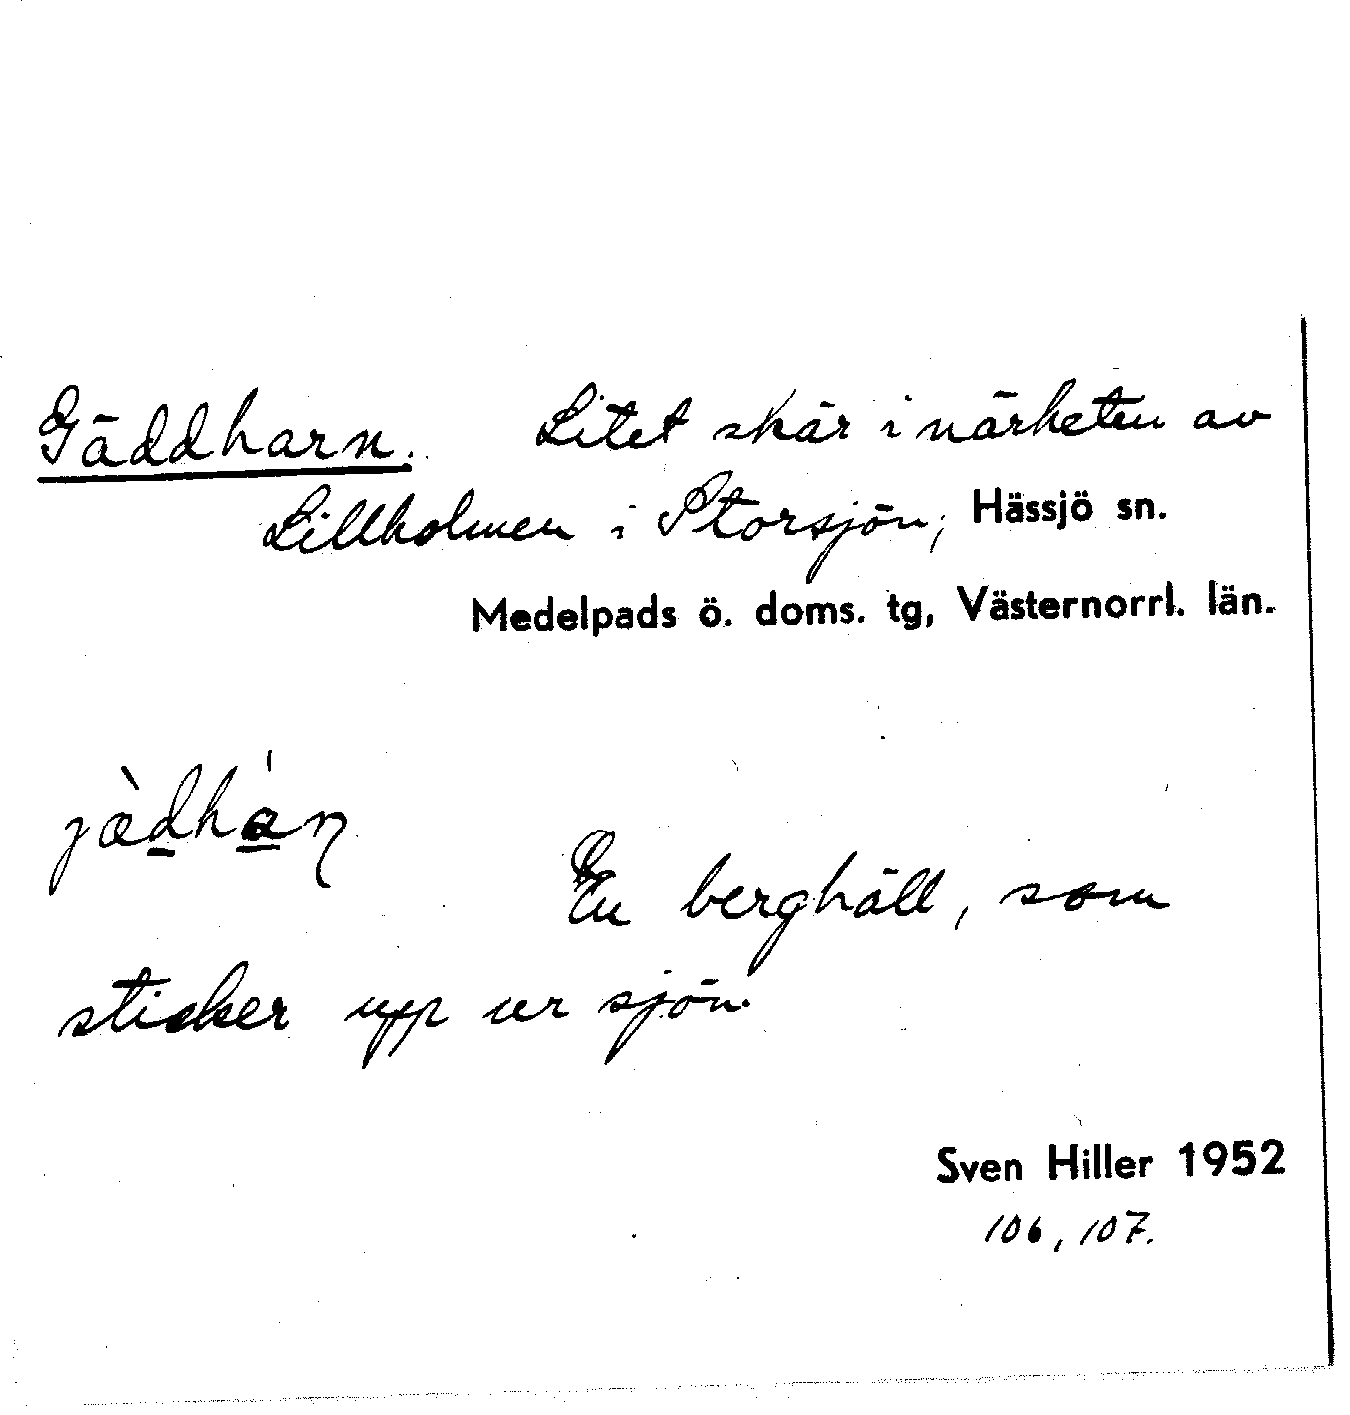 Gäddharn. Litet skär i närheten av
Lillholmen i Storsjön, Hässjö sn.
Medelpads ö. doms. tg, Västernorrl. län.
jæ̀dhán
En berghäll, som
sticker upp ur sjön.
Sven Hiller 1952
106, 107.